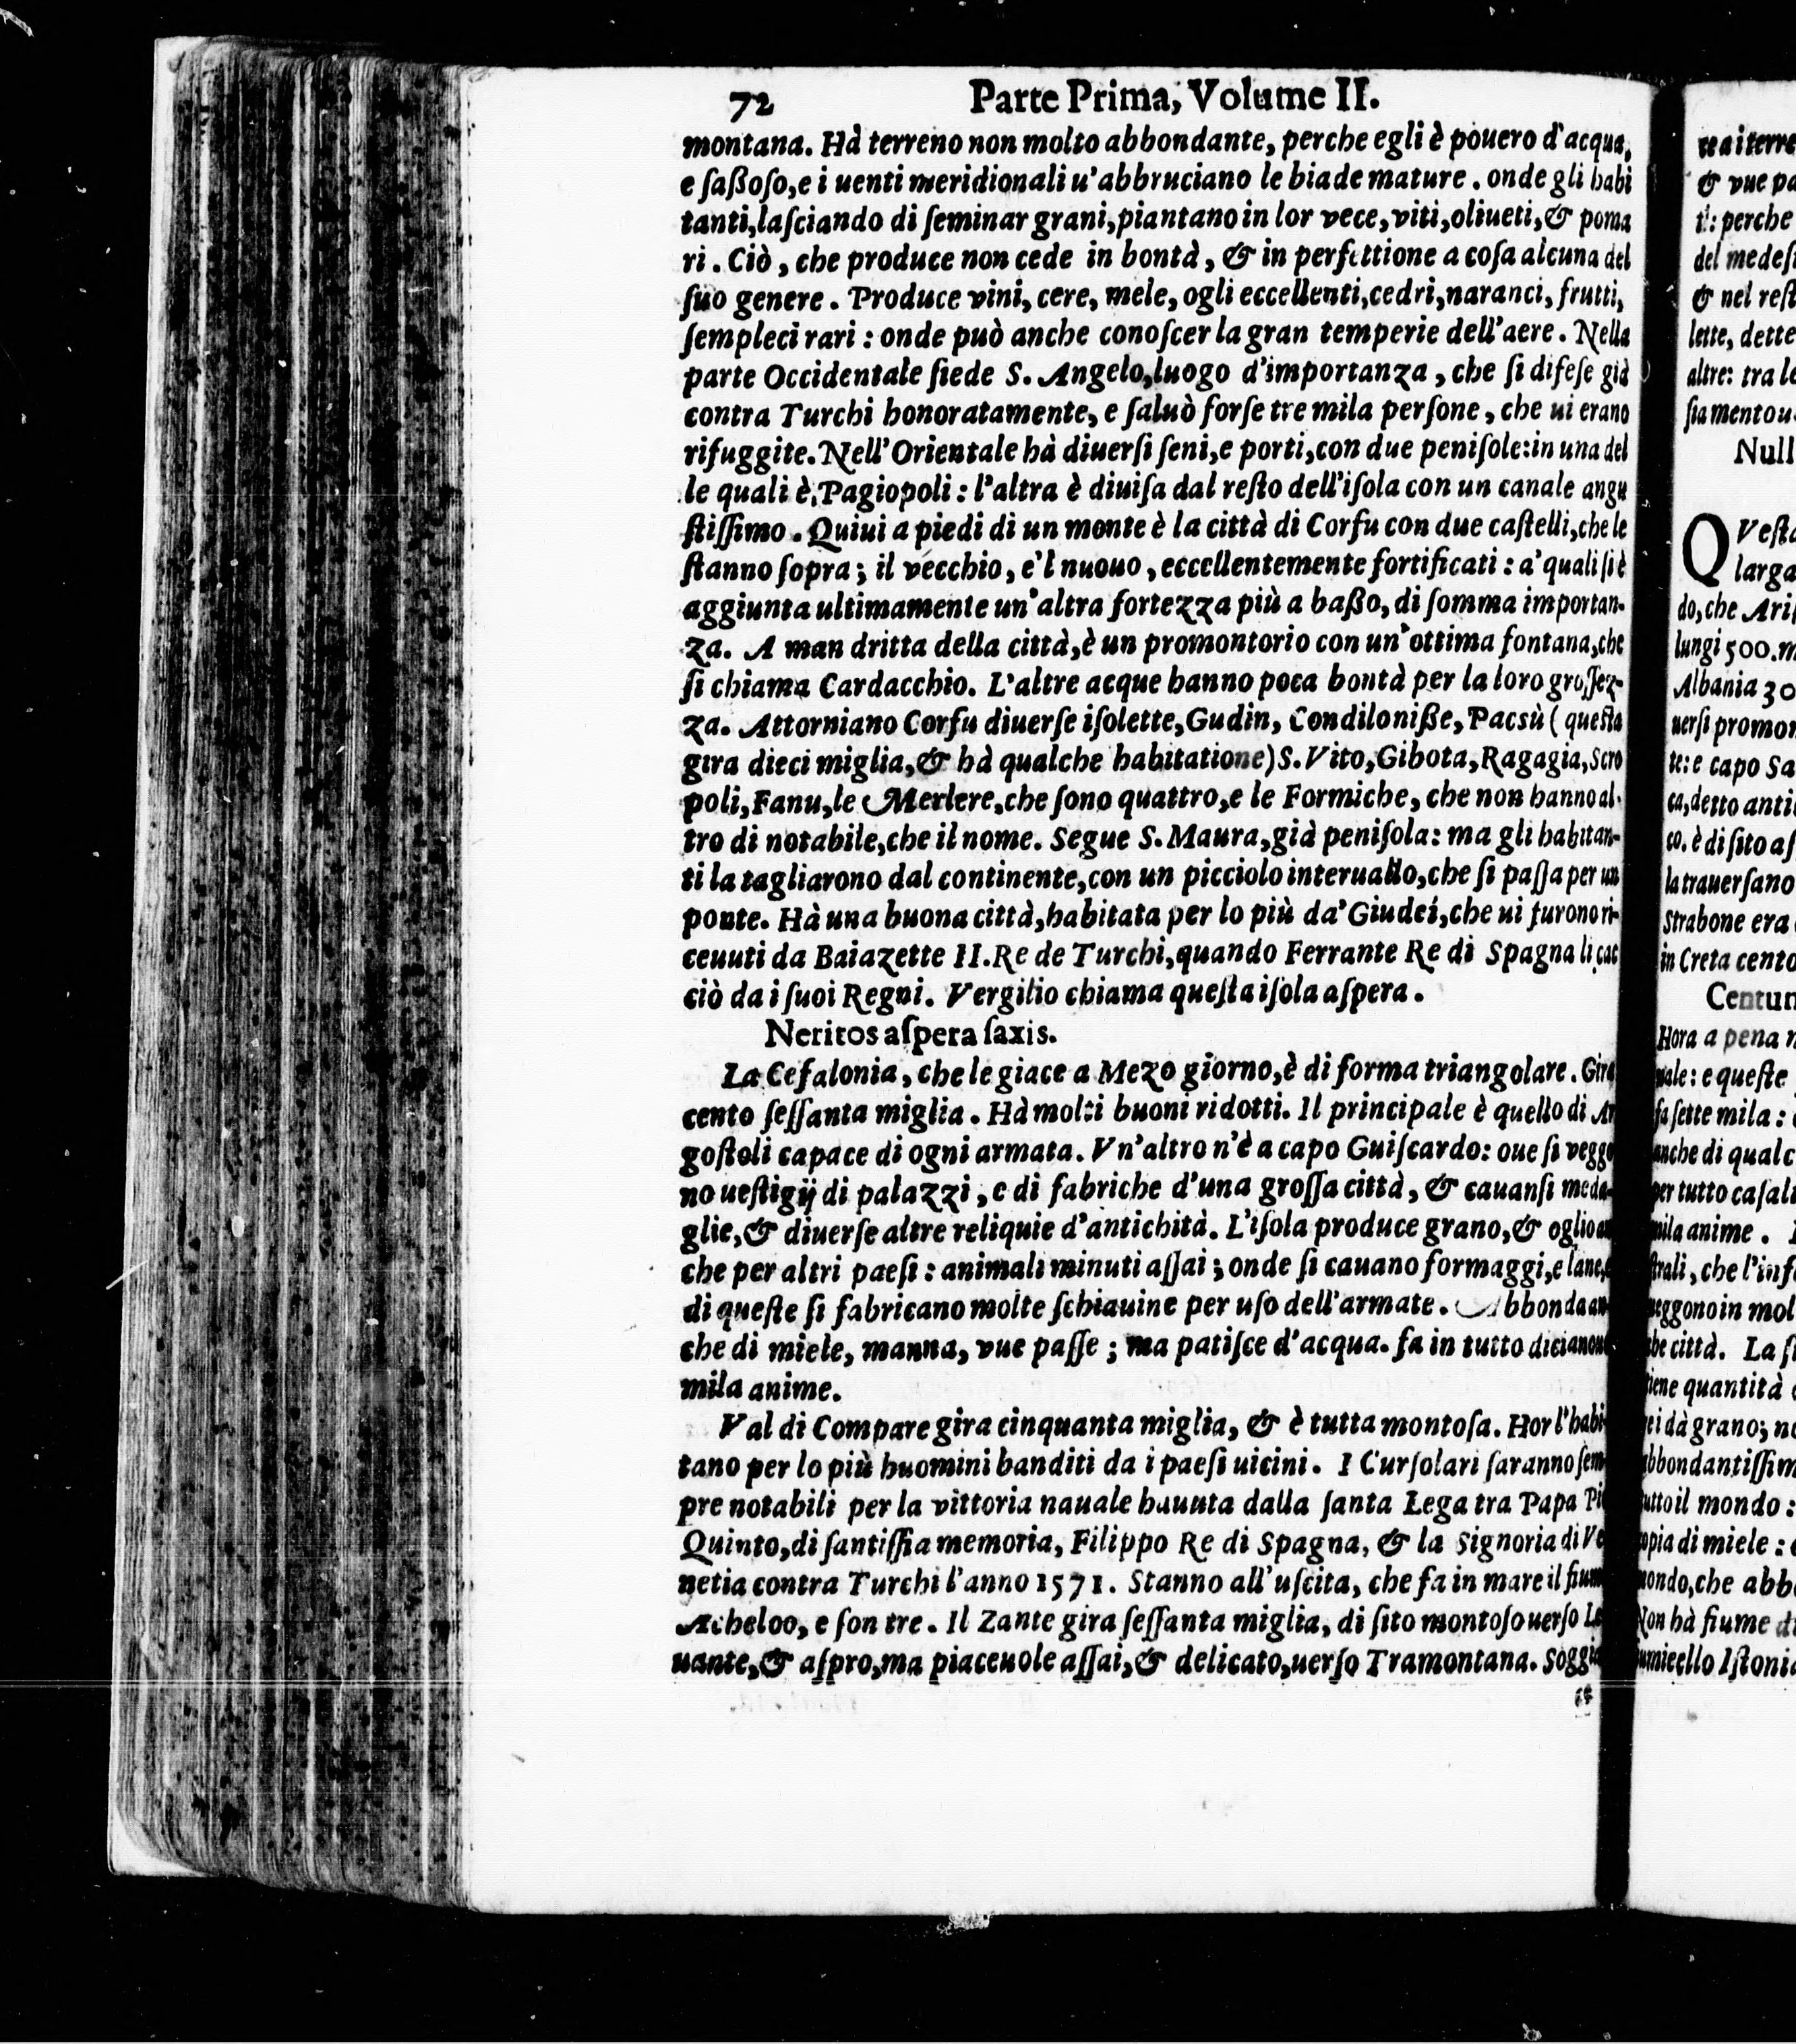 72 Parte Prima, Volume II.
montana. Hà terreno non molto abbondante, perche egli è pouero d'acqua,
e ſaßoſo, e i uenti meridionali u'abbruciano le biade mature. onde gli habi
tanti, laſciando di ſeminar grani, piantano in lor vece, viti, oliueti, & poma
ri. Ciò, che produce non cede in bontà, & in perfettione a coſa alcuna del
ſuo genere. Produce vini, cere, mele, ogli eccellenti, cedri, naranci, frutti,
ſempleci rari: onde può anche conoſcer la gran temperie dell'aere. Nella
parte Occidentale ſiede S. Angelo, luogo d'importanza, che ſi difeſe già
contra Turchi honoratamente, e ſaluò forſe tre mila perſone, che ui erano
rifuggite. Nell'Orientale hà diuerſi ſeni, e porti, con due peniſole: in una del
le quali è, Pagiopoli: l'altra è diuiſa dal reſto dell'iſola con un canale angu
ſtiſſimo. Quiui a piedi di un monte è la città di Corfu con due caſtelli, che le
ſtanno ſopra; il vecchio, e'l nuouo, eccellentemente fortificati: a' quali ſi è
aggiunta ultimamente un'altra fortezza più a baßo, di ſomma importan-
za. A man dritta della città, è un promontorio con un'ottima fontana, che
ſi chiama Cardacchio. L'altre acque hanno poca bontà per la loro groſſez-
za. Attorniano Corfu diuerſe iſolette, Gudin, Condiloniße, Pacsù (queſta
gira dieci miglia, & hà qualche habitatione) S. Vito, Gibota, Ragagia, Scro
poli, Fanu, le Merlere, che ſono quattro, e le Formiche, che non hanno al-
tro di notabile, che il nome. Segue S. Maura, già peniſola: ma gli habitan-
ti la tagliarono dal continente, con un picciolo interuallo, che ſi paſſa per un
ponte. Hà una buona città, habitata per lo più da' Giudei, che ui furono ri-
ceuuti da Baiazette II. Re de Turchi, quando Ferrante Re di Spagna li cac
ciò da i ſuoi Regni. Vergilio chiama queſta iſola aſpera.
Neritos aſpera ſaxis.
La Cefalonia, che le giace a Mezo giorno, è di forma triangolare. Gira
cento ſeſſanta miglia. Hà molti buoni ridotti. Il principale è quello di Ar
goſtoli capace di ogni armata. Vn'altro n'è a capo Guiſcardo: oue ſi veggo
no ueſtigij di palazzi, e di fabriche d'una groſſa città, & cauanſi meda-
glie, & diuerſe altre reliquie d'antichità. L'iſola produce grano, & oglio an
che per altri paeſi: animali minuti aſſai; onde ſi cauano formaggi, e lane,
di queſte ſi fabricano molte ſchiauine per uſo dell'armate. Abbonda an-
che di miele, manna, vue paſſe; ma patiſce d'acqua. fa in tutto dicianoue
mila anime.
Val di Compare gira cinquanta miglia, & è tutta montoſa. Hor l'habi-
tano per lo più huomini banditi da i paeſi uicini. I Curſolari ſaranno ſem-
pre notabili per la vittoria nauale hauuta dalla ſanta Lega tra Papa Pio
Quinto, di ſantiſſia memoria, Filippo Re di Spagna, & la Signoria di Ve
netia contra Turchi l'anno 1571. Stanno all'uſcita, che fa in mare il fiume
Acheloo, e ſon tre. Il Zante gira ſeſſanta miglia, di ſito montoſo uerſo Le
uante, & aſpro, ma piaceuole aſſai, & delicato, uerſo Tramontana. Soggia
& vue
perche
& nel
lette, dette
altre: tra
Null
larga
do, che
lungi 500.
Albania
e capo
è di ſito
la trauerſano
Strabone era
in Creta
Hora a pena
e queſte
ſette mila:
per tutto caſali
mila anime.
ſtrali, che
città. La
quantità
dà grano;
il mondo:
di miele:
che
Non hà fiume